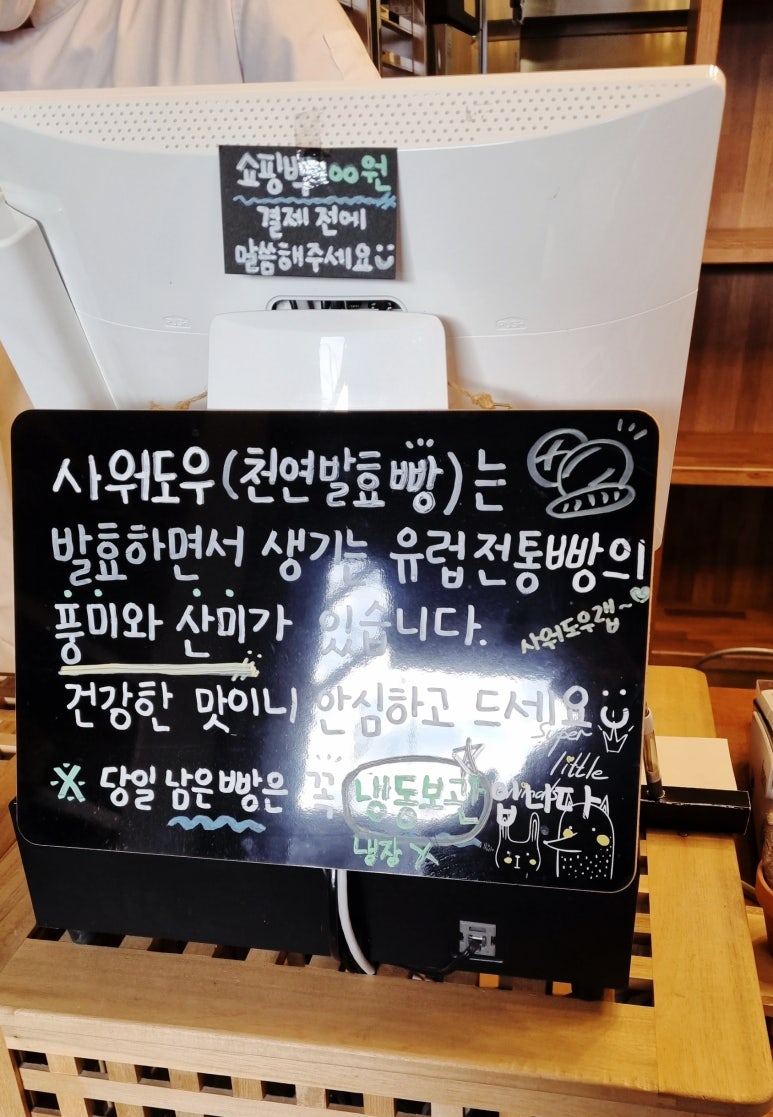 쇼핑백 100원
결제 전에
말씀해주세요
사워도우(천연발효빵)는
발효하면서 생기는 유럽전통빵의
풍미와 산미가 있습니다.
사워도우랩~
건강한 맛이니 안심하고 드세요
Super
little
※ 당일 남은빵은 꼭 냉동보관입니다
냉장 X